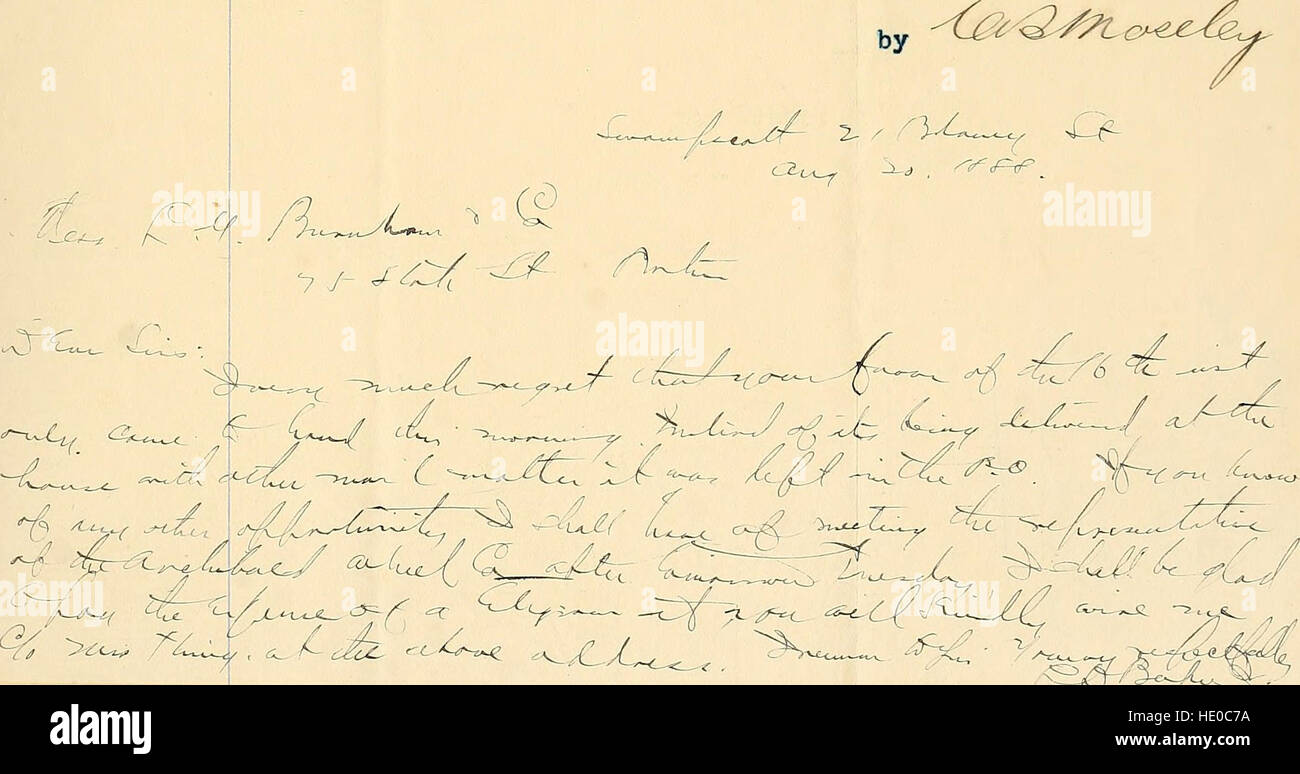 by CAS Moseley
Swampscott 21 Blaney St
Aug 20. 1888.
Mess R. H. Burnham & Co
75 State St Boston
Dear Sirs:
I very much regret that your favor of the 16th inst
only came to hand this morning. Instead of its being delivered at the
house with other mail matter it was left in the P.O. If you know
of any other opportunity I shall have of meeting the representative
of the Archibald Wheel Co after tomorrow Tuesday I shall be glad
to pay the expense of a telegram if you will kindly wire me
c/o Miss Thing. at the above address. I remain Yours respectfully
Baker
alamy
alamy
Image ID: HE0C7A
www.alamy.com